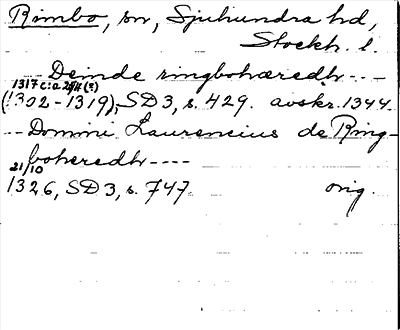 Rimbo, sn, Sjuhundra hd,
Stockh. l.
Deinde ringbohæredh ---
1317 c:a 29/4 (?)
(1302-1319), SD 3, s. 429. avskr. 1344.
-- Domini Laurencius de Ring-
boheredh ----
21/10
1326, SD 3, s. 747. orig.